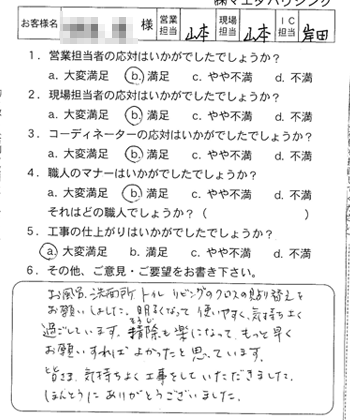 ㈱マエダハウジング
お客様名 様 営業担当 山本 現場担当 山本 IC担当 岸田
1．営業担当者の応対はいかがでしたでしょうか？
a. 大変満足 b. 満足 c. やや不満 d. 不満
2．現場担当者の応対はいかがでしたでしょうか？
a. 大変満足 b. 満足 c. やや不満 d. 不満
3．コーディネーターの応対はいかがでしたでしょうか？
a. 大変満足 b. 満足 c. やや不満 d. 不満
4．職人のマナーはいかがでしたでしょうか？
a. 大変満足 b. 満足 c. やや不満 d. 不満
それはどの職人でしょうか？（ ）
5．工事の仕上がりはいかがでしたでしょうか？
a. 大変満足 b. 満足 c. やや不満 d. 不満
6．その他、ご意見・ご要望をお書き下さい。
お風呂、洗面所、トイレ リビングのクロスの貼り替えを
お願いしました。明るくなって 使いやすく、気持ちよく
過ごしています。掃除も楽になって、もっと早く
お願いすれば よかったと思っています。
皆さま、気持ちよく工事をしていただきました。
ほんとうに ありがとうございました。